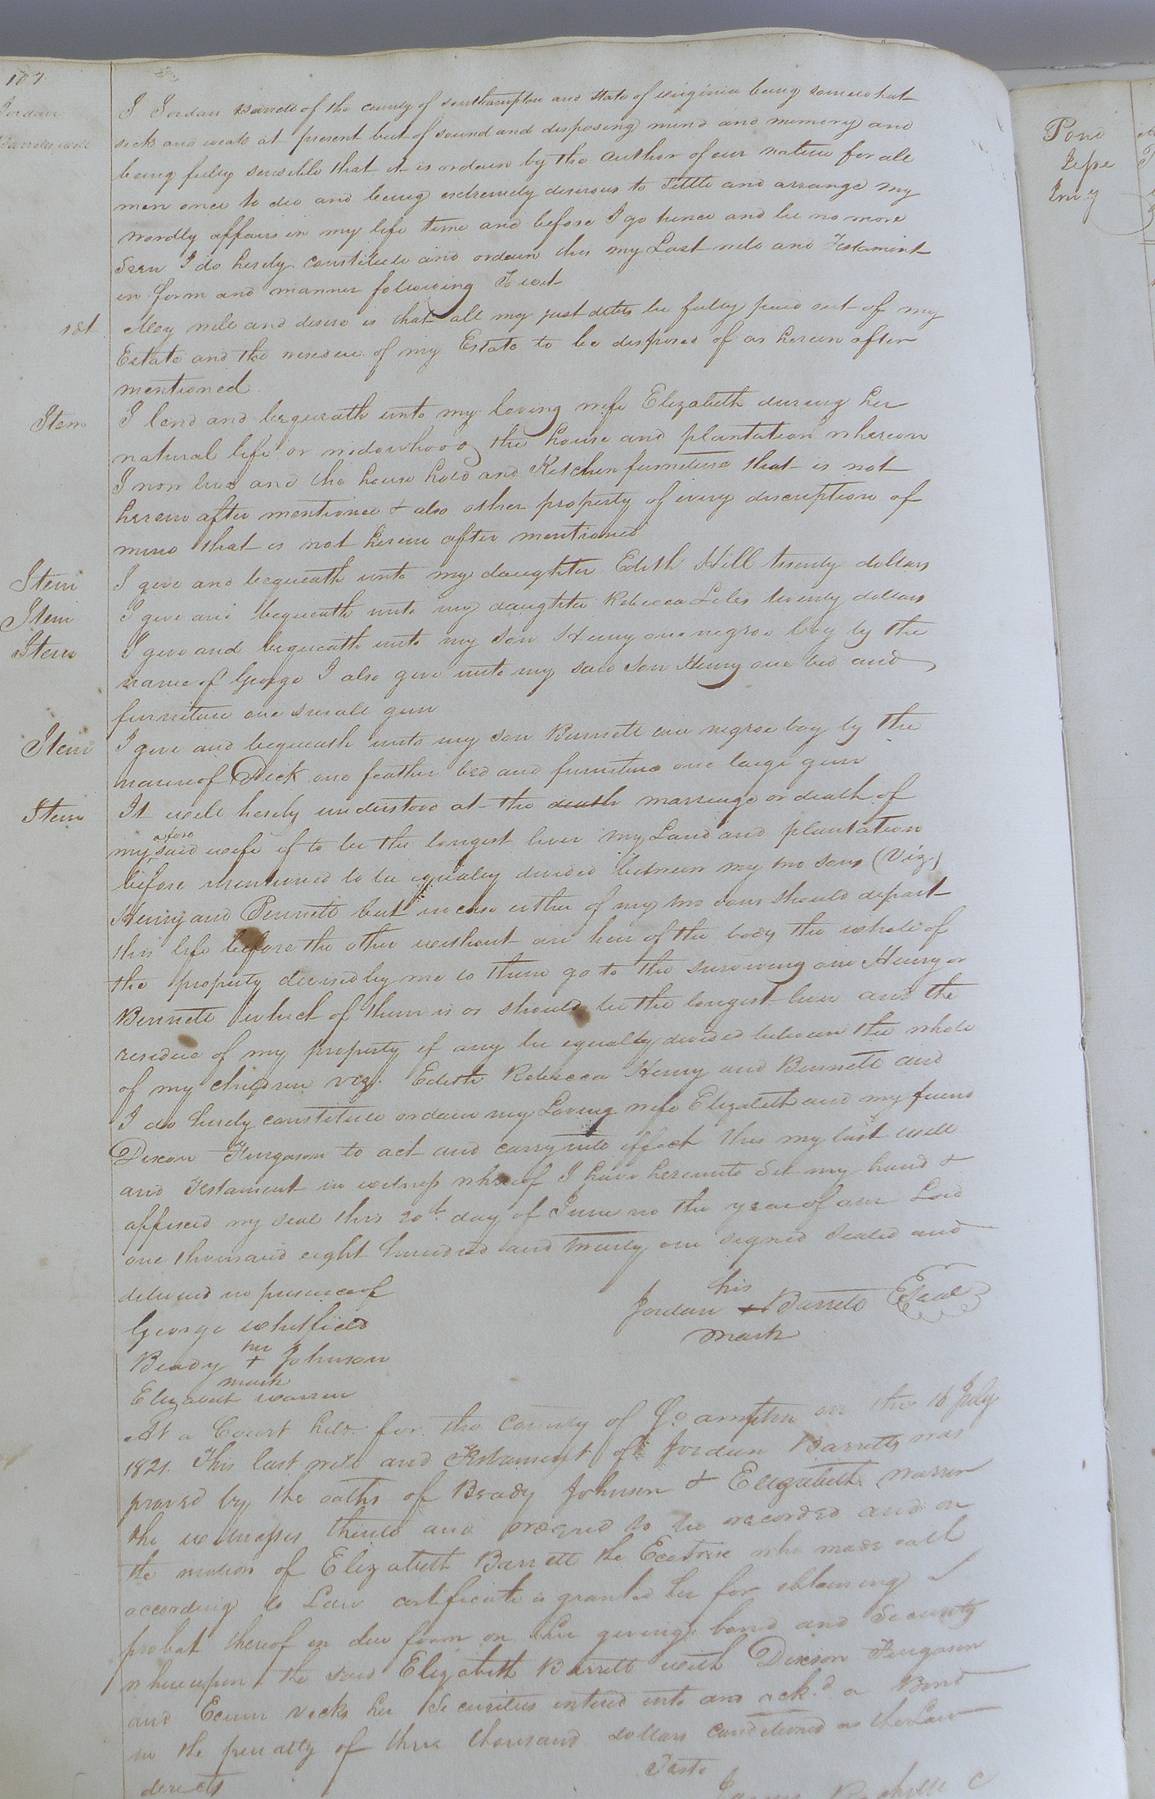 107
Jordan
Barretts will
I Jordan Barrett of the county of Southampton and State of Virginia being somewhat
sick and weak at present but of sound and disposing mind and memory and
being fully sensible that it is ordain by the author of our nature for all
men once to die and being extremely desirous to Settle and arrange my
wordly affairs in my life time and before I go hence and be no more
Seen I do hereby constitute and ordain this my Last will and Testament
in form and manner following To wit
My will and desire is that all my just debts be fully paid out of my
Estate and the residue of my Estate to be disposed of as herein after
mentioned
Item I lend and bequeath unto my loving wife Elizabeth during her
natural life or widowhood the house and plantation whereon
I now live and the house hold and Kitchen furniture that is not
herein after mentioned & also other property of every discription of
mine that is not herein after mentioned
Item I give and bequeath unto my daughter Edith Hill twenty dollars
Item I give and bequeath unto my daughter Rebecca Liles twenty dollars
Item I give and bequeath unto my son Henry one negroe boy by the
name of George I also give unto my said Son Henry one bed and
furniture one small gun
Item I give and bequeath unto my son Bennett one negroe boy by the
name of Dick one feather bed and furniture one large gun
Item It will hereby understood at the death marriage or death of
my afore said wife if to be the longest liver my Land and plantation
before mentioned to be equaley divided between my two sons (Viz.)
Henry and Bennett but in case either of my two sons should depart
this life before the other without an heir of the body the whole of
the property devised by me to them go to the surviving one Henry or
Bennett which of them is or should be the longest liver and the
residue of my property if any be equally divided between the whole
of my children viz. Edith Rebecca Henry and Bennett and
I do hereby constitute ordain my Loving wife Elizabeth and my friend
Dixon Ferguson to act and carry into effect this my last will
and Testament in witness whereof I have hereunto Set my hand &
affixed my seal this 20th day of June in the year of our Lord
one thousand eight hundred and twenty one signed Sealed and
delivered in presence of
his
Jordan + Barrett Seal
mark
George Whitfield
her
Beady + Johnson
mark
Elizabeth Warren
At a Court held for the county of So ampton on the 16 July
1821. This last will and Testament of Jordan Barrett was
proved by the oaths of Beady Johnson & Elizabeth Warren
the witnesses thereto and ordered to be recorded and on
the motion of Elizabeth Barrett the Exetrix who made oath
according to Law certificate is granted her for obtaining
probat thereof in due form on her giving bond and Security
whereupon the said Elizabeth Barrett with Dixon Ferguson
and Vicks her Securities entered into and ackd. a Bond
in the penalty of three thousand dollars conditioned as the Law
directs
Teste
James Rochelle C